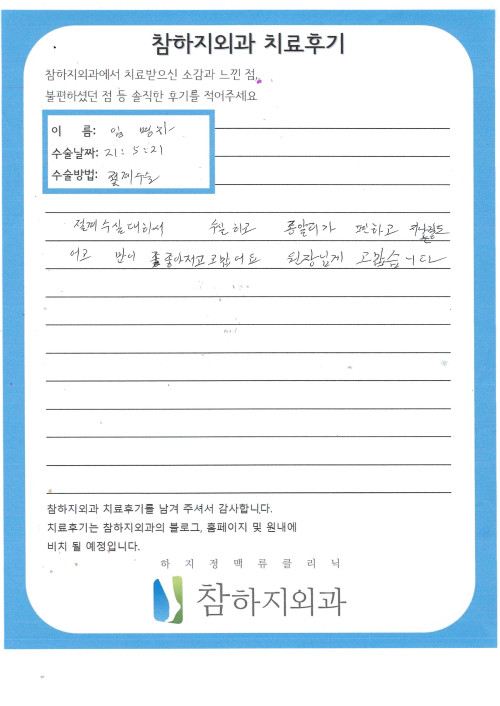 참하지외과 치료후기
참하지외과에서 치료받으신 소감과 느낀 점,
불편하셨던 점 등 솔직한 후기를 적어주세요
이 름: 임
수술날짜: 21:5:21
수술방법: 절제수술
절제수실대하서 수실하고 종알리가 편하고
좋아저고 고맙어요 원장님게 고맙습니다
참하지외과 치료후기를 남겨 주셔서 감사합니다.
치료후기는 참하지외과의 블로그, 홈페이지 및 원내에
비치 될 예정입니다.
하지정맥류클리닉
참하지외과